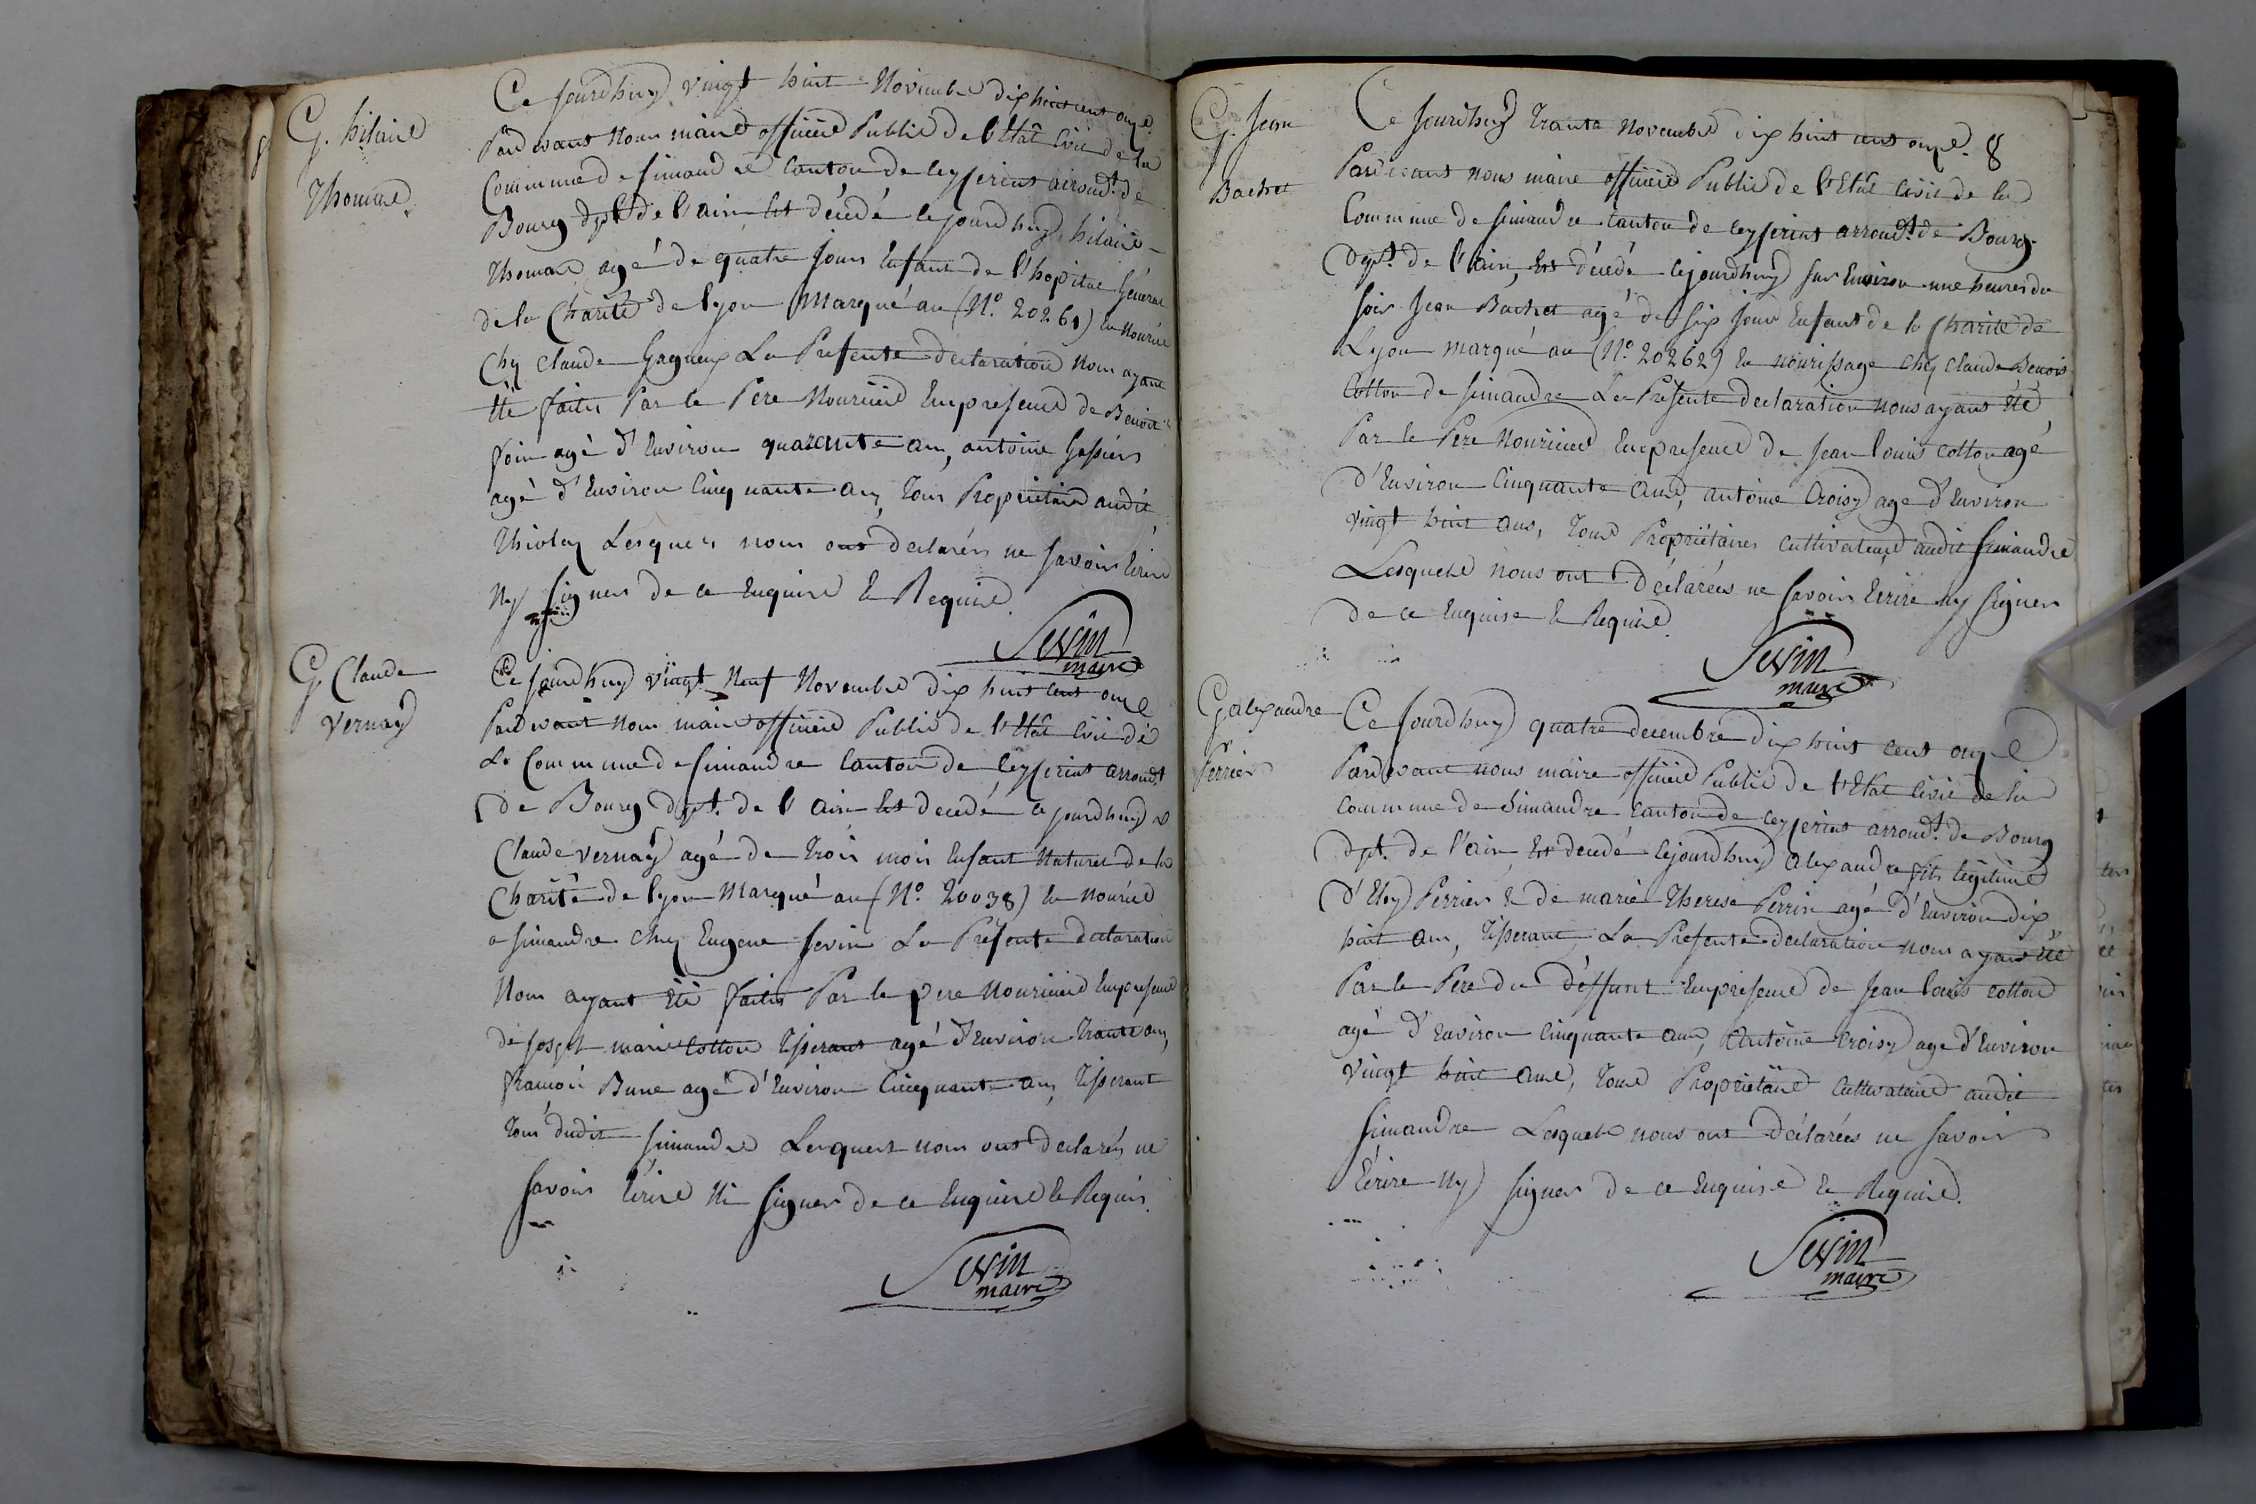 G. hilaire
Thomare
Ce jourdhuy vingt huit Novembre dix huit cent onze
Pardevant Nous maire officiere Public de l'Etat Civil de la
Commune de simandre Canton de Ceyserias airondt. de
Bourg dpt. de l'ain Est décédé cejourdhuy hilaire
Thomare agé de quatre jours Enfant de l'hopital Général
de la Charité de lyon Marqué au (N°. 20261) En nourice
Chez Claude Gagneux La Presente declaration Nous ayant
Eté faites Par le Pere Nouricié En presence de Benoit
foin agé d'Environ quarante ans, antoine
agé d'Environ Cinquante ans, Tous Proprietaire audit
Thiolaz Lesquels nous ont declarés ne Savoir Ecrire
Ny Signer de ce Enquire & Requise.
Sevin
maire
G. Claude
Vernay
Ce jourdhuy vingt Neuf Novembre dix huit cent onze
Pardevant Nous maire officiere Public de l'Etat Civil de
La Commune de simandre Canton de Ceyserias arrondt.
de Bourg dpt. de l'ain Est decedé ce jourdhuy
Claude Vernay agé de Trois mois Enfant Naturel de la
Charité de lyon Marqué au (N°. 20038) En nourice
a simandre chez Eugene sevin La Presente declaration
Nous ayant Eté faites Par le pere nouricié En presence
de joseph marie Cotton Tisserant agé d'Environ Trante ans,
francois Bune agé d'Environ Cinquante ans Tisserant
Tous dudit simandre Lesquels nous ont declarés ne
Savoir Ecrire Ni Signer de ce Enquire & Requis.
Sevin
maire
8
G. Jean
Bachet
Ce jourdhuy Trante Novembre dix huit cent onze.
Pardevant nous maire officiere Public de l'Etat Civil de la
Commune de simandre Canton de Ceyserias arrondt. de Bourg.
Dpt. de l'ain, Est décédé cejourdhuy sur Environ une heures du
soir Jean Bachet agé de six jour Enfant de la Charité de
Lyon marqué au (N°. 20262) En nourissage chez Claude Benoit
Cotton de simandre La Présente declaration nous ayant Eté
Par le Pere Nouricier En presence de Jean louis Cotton agé
d'Environ Cinquante ans, antoine Croisy age d'Environ
vingt huit ans, Tous Propriétaires Cultivateurs audit simandre
Lesquels nous ont déclarées ne Savoir Ecrire ny Signer
de ce Enquise & Requise.
Sevin
maire
G. alexandre
Perrier
Ce jourdhuy quatre decembre dix huit cent onze
Pardevant nous maire officiere Public de l'Etat Civil de la
Commune de Simandre Canton de Ceyserias arrondt. de Bourg
dpt. de l'ain Est decedé cejourdhuy alexandre fils légitime
d'Eloy Perrier & de marie Therese Perrin agé d'Environ dix
huit ans, Tisserant La Presente declaration nous ayant Eté
Par le Pere du Deffunt En presence de Jean louis Cotton
agé d'Environ Cinquante ans, Antoine Croisy age d'Environ
Vingt huit ans, Tous Propriétaire Cultivateurs audit
Simandre Lesquels nous ont Déclarées ne Savoir
Ecrire Ny Signer de ce Enquise & Requise.
Sevin
maire